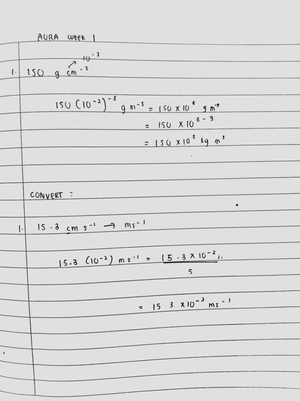 AURA WEEK 1
10⁻²
1. 150 g cm⁻³
150 (10⁻²)⁻³ g m⁻³ = 150 × 10⁶ g m³
= 150 × 10⁶⁻³
= 150 × 10³ kg m³
CONVERT :
1. 15.3 cm s⁻¹ → ms⁻¹
15.3 (10⁻²) m s⁻¹ = 15.3 × 10⁻²
s
= 15 3 × 10⁻² ms⁻¹